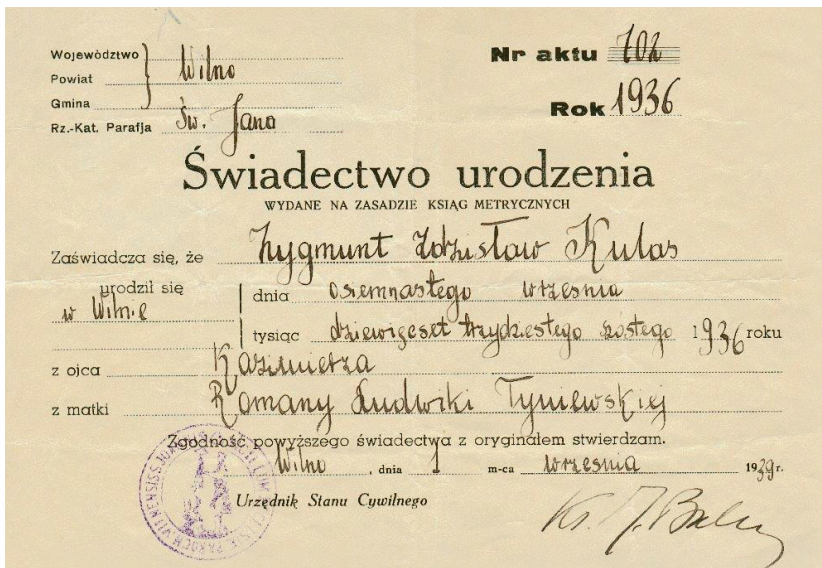 Województwo
Powiat Wilno
Gmina
Rz.-Kat. Parafja Św. Jana
Nr aktu 702
Rok 1936
Świadectwo urodzenia
WYDANE NA ZASADZIE KSIĄG METRYCZNYCH
Zaświadcza się, że Zygmunt Zdzisław Kulas
urodził się
w Wilnie
dnia osiemnastego września
tysiąc dziewięćset trzydziestego szóstego 1936 roku
z ojca Kazimierza
z matki Romany Ludwiki Tyniewskiej
Zgodność powyższego świadectwa z oryginałem stwierdzam.
Wilno, dnia 1 m-ca września 1939 r.
Urzędnik Stanu Cywilnego
Ks. J.